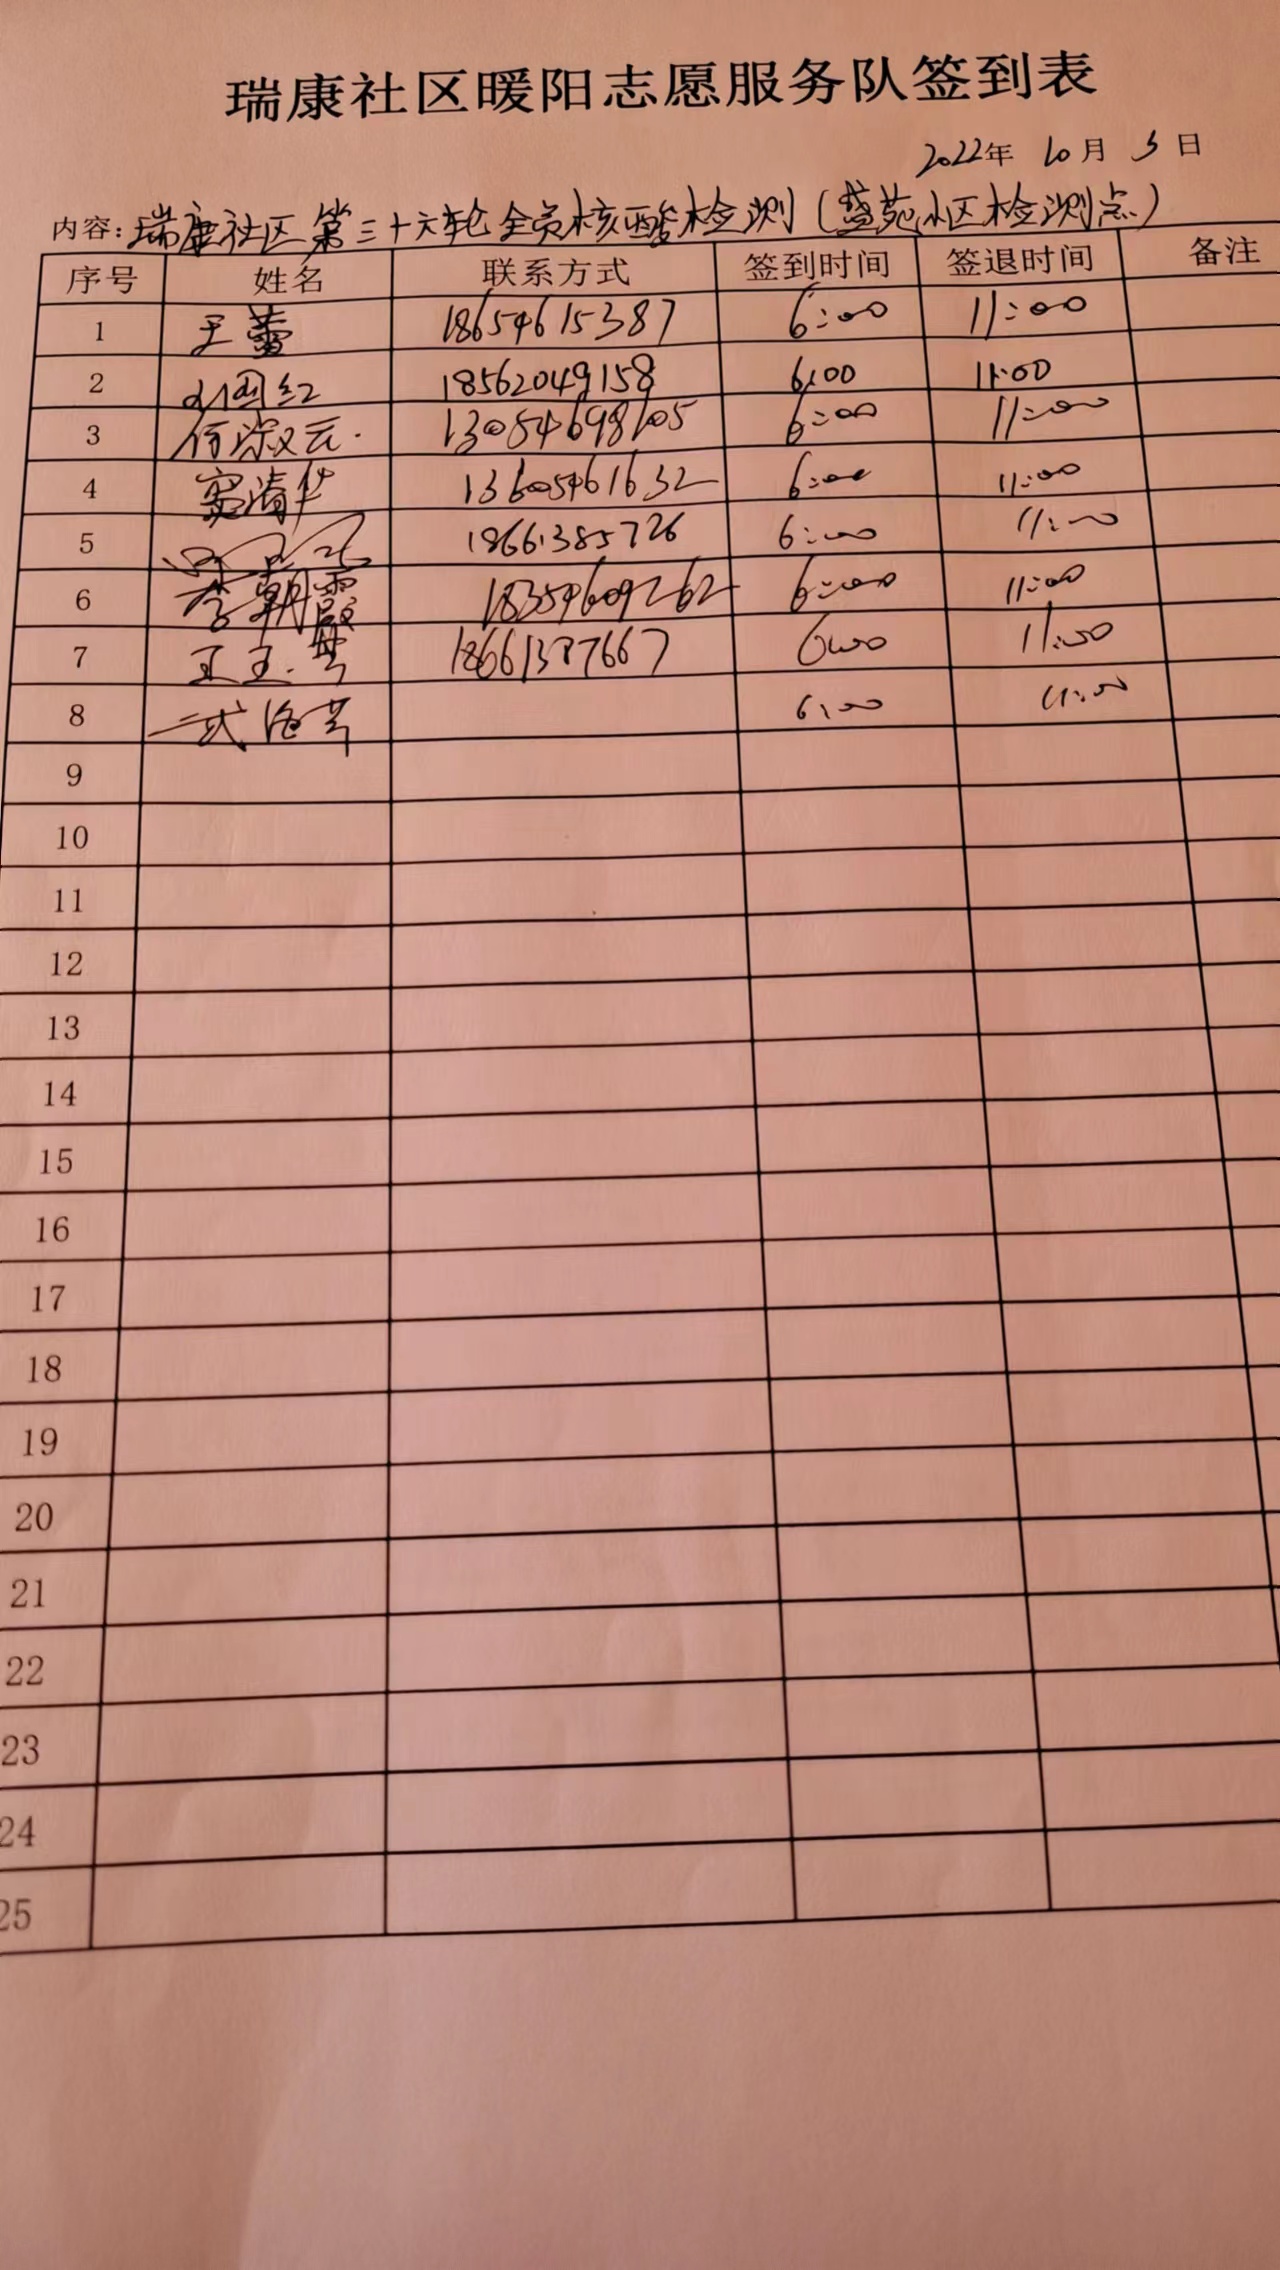 瑞康社区暖阳志愿服务队签到表
2022年 10月 3日
内容：瑞康社区第三十六轮全员核酸检测（盛苑小区检测点）
序号 姓名 联系方式 签到时间 签退时间 备注
1 王蕾 18654615387 6:00 11:00
2 刘国红 18562049158 6:00 11:00
3 何淑云 13054698105 6:00 11:00
4 窦清华 13605461632 6:00 11:00
5 18661385726 6:00 11:00
6 李朝霞 18354609262 6:00 11:00
7 18661387667 6:00 11:00
8 6:00 11:00
9
10
11
12
13
14
15
16
17
18
19
20
21
22
23
24
25